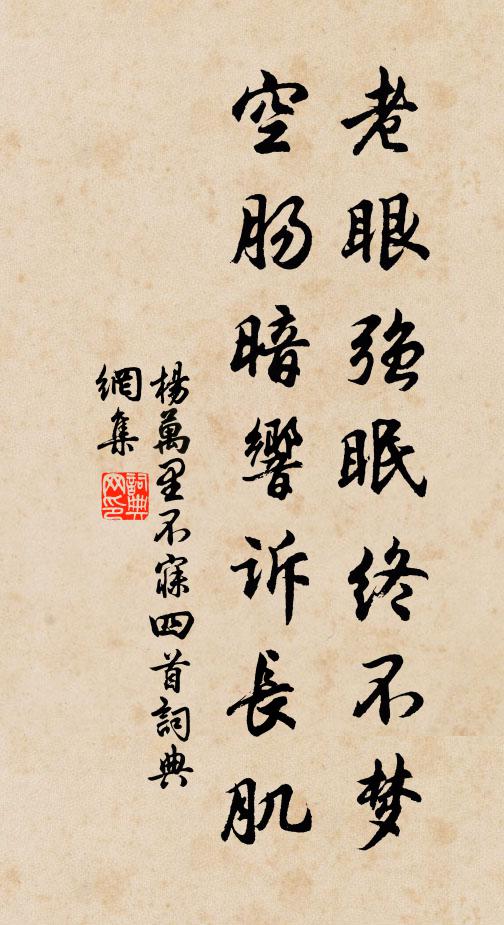 老眼強眠终不梦
空肠暗響诉長肌
楊萬里不寐四首詞典
網集
詞典
网印